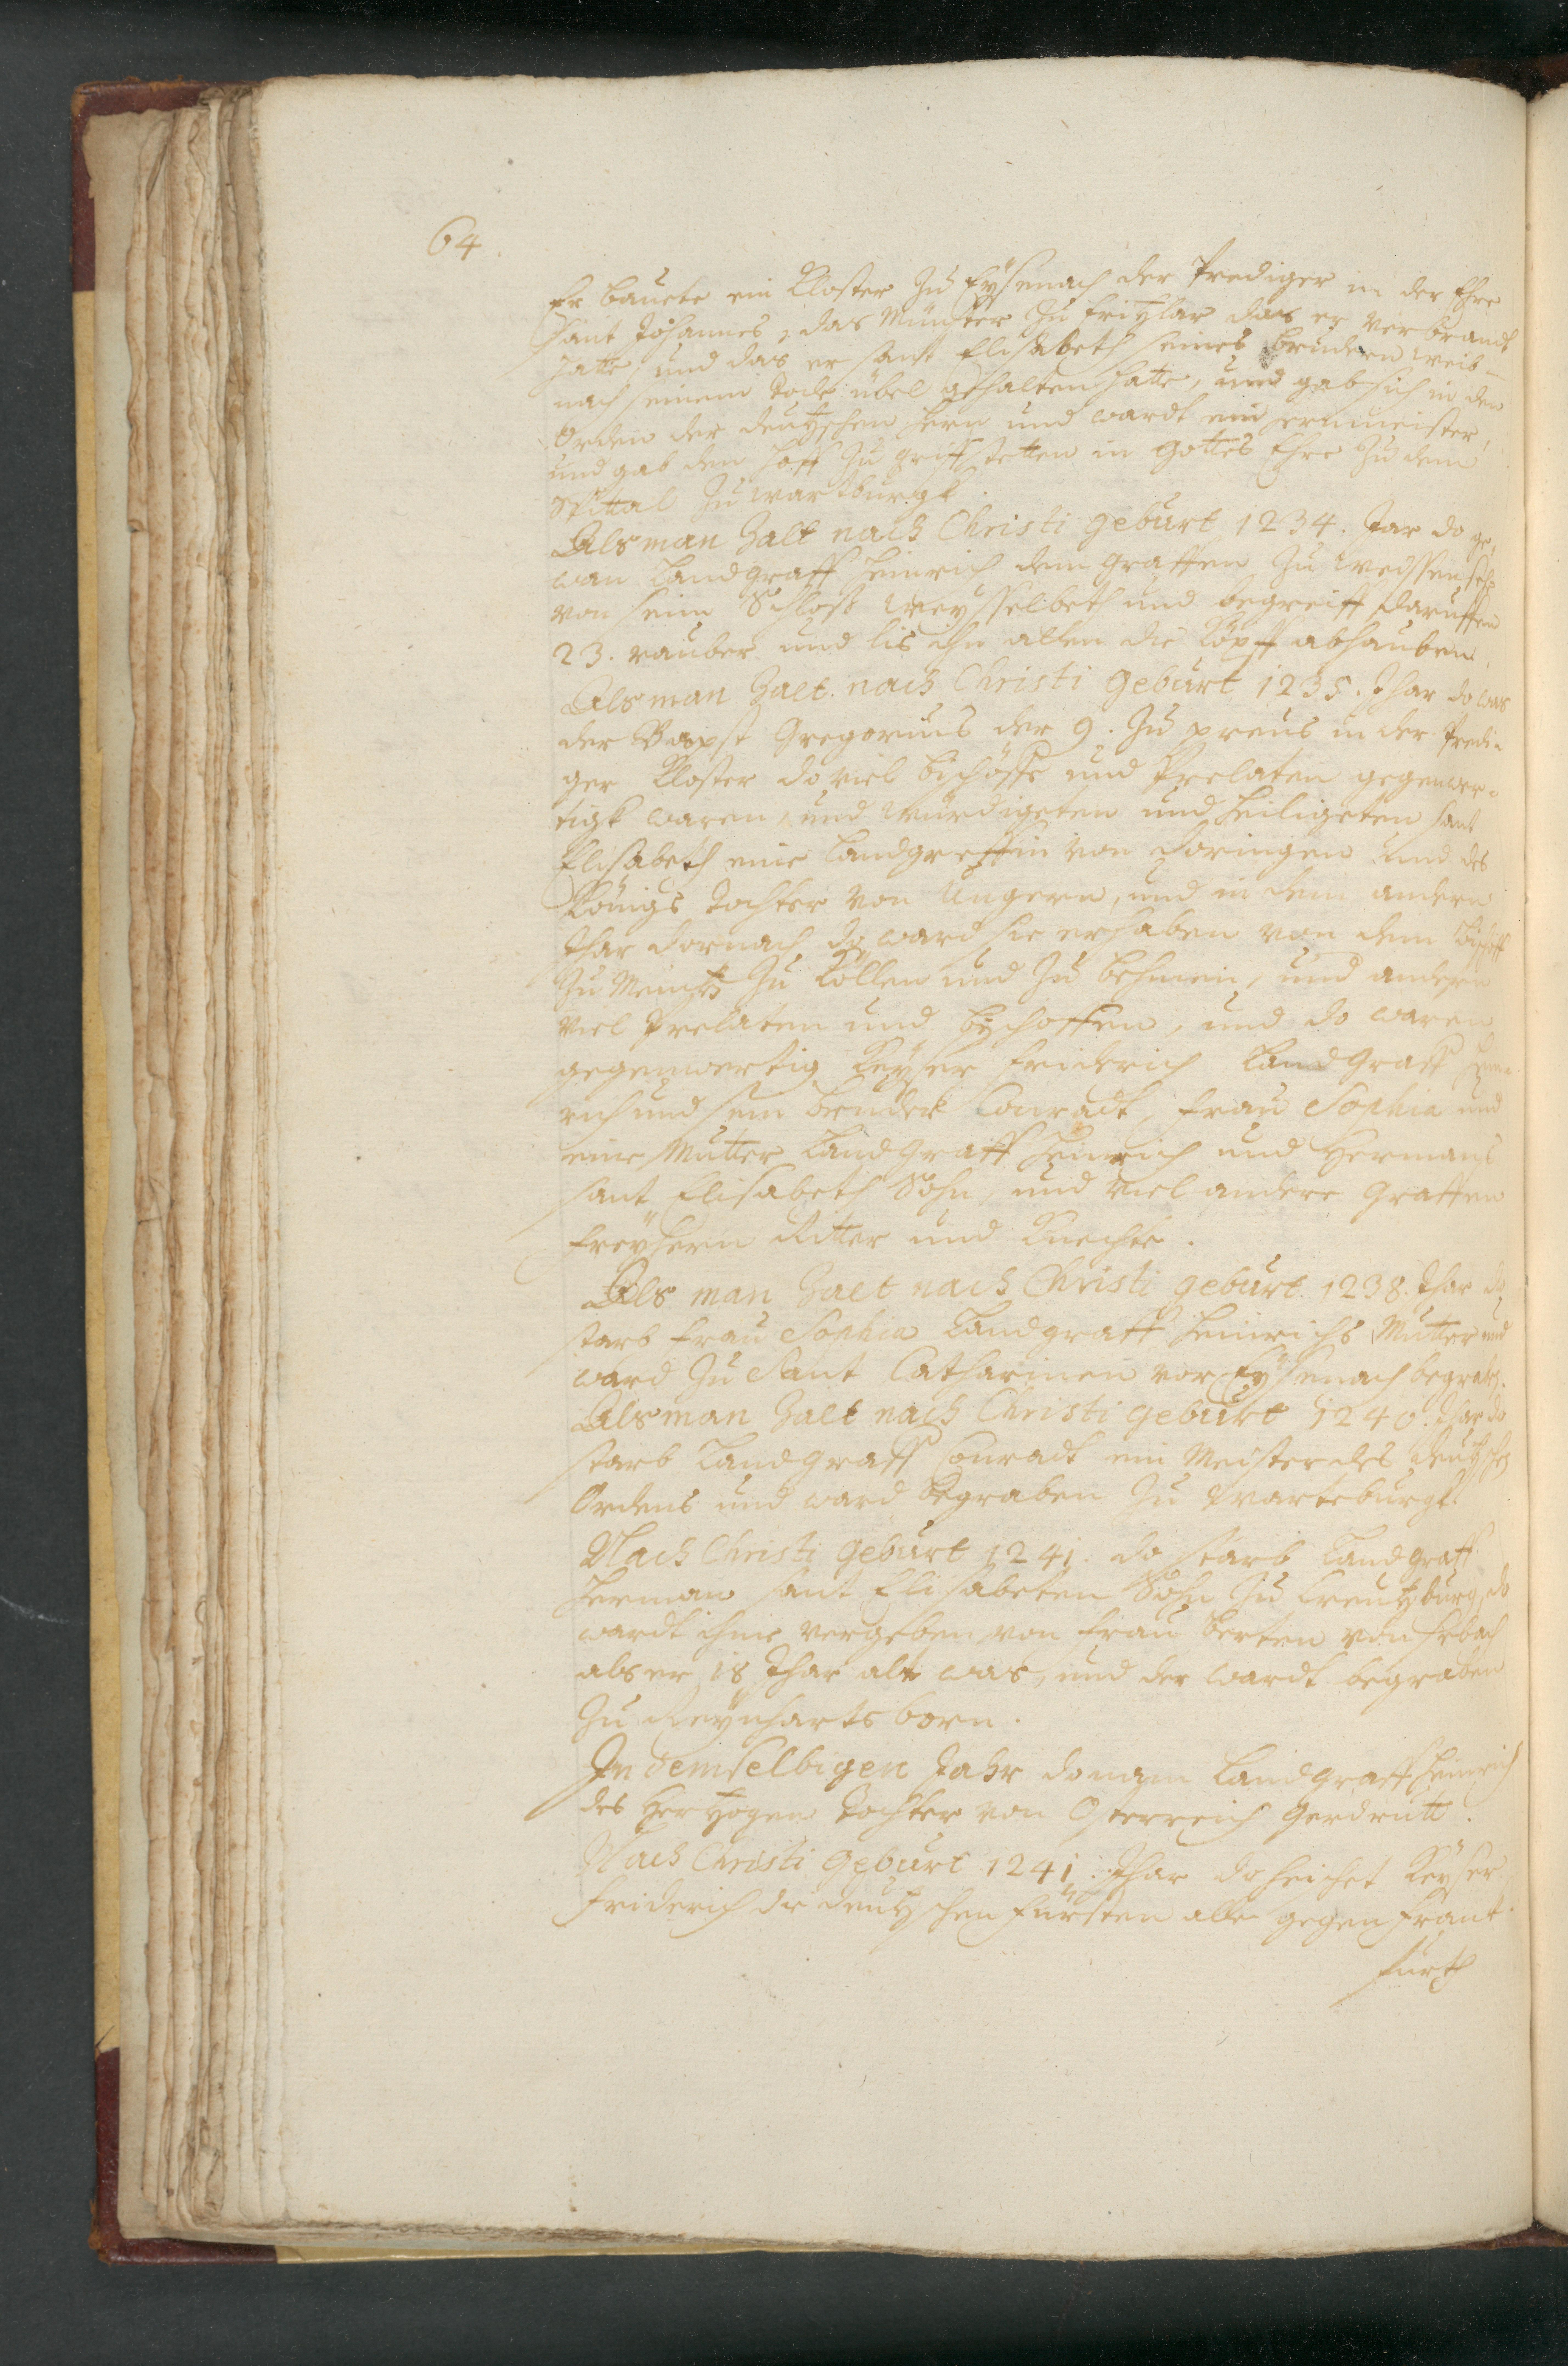 64
Er bauete ein Kloster zu Eysenach der Prediger in der Ehre
Sant Johannes, das Münster zu Fritzlar das er verbrandt
hatte, und das er Sanct Elisabeth seines Brudern weib
nach seinem Tode übel gehalten hatte, und gab sich in den
Orden der deutzschen Hern und wardt ein Hermmeister,
und gab den Hoff zu griffstetten in Gottes Ehre zu dem
Spittal zu wartburgk.
Als man Zalt nach Christi geburt 1234. Jar do ge,
wan Landgraff Heinrich dem Graffen zu Weyssensehe
von seim Schloß Weysselbeth und begreiff daruffen
23. rauber und lis ihn allen die Köpff abhauben.
Als man Zalt nach Christi geburt 1235. Jhar do was
der Bapst Gregorius der 9. zu preus in der Predi-
ger Kloster do viel bischöffe und Prelaten gegenwer-
tigk waren, und würdigeten und heiligeten sant
Elisabeth eine Landgreffin von Doringen und des
Königs tochter von Ungern, und in dem andern
Jhar dornach do ward sie erhaben von dem Bischoff
zu Meintz zu Köllen und zu Behmen, und andern
viel Prelaten und Bischoffen, und do waren
gegenwertig Keyser Friderich Landgraff Hein-
rich und sein bruder Conradt, Frau Sophia und
eine Mutter Landgraff Heinrich und Hermans
sant Elisabeth Sohn, und viel andere Graffen
Freyhern Ritter und Knechte.
Als man Zalt nach Christi geburt. 1238. Jhar do
starb Frau Sophia Landgraff Heinrichs Mutter und
ward zu Sant Catharinen vor Eysenach begraben.
Als man Zalt nach Christi geburt 1240. Jhar do
starb Landgraff Conradt ein Meister des deutschen
Ordens und ward begraben zu Marteburgk.
Nach Christi geburt 1241. do starb Landgraff
Herman sant Elisabeten Sohn zu Creutzburg, do
wardt ihme vergeben von Frau Berten von Sebach
als er 18 Jhar alt was, und der wardt begraben
zu Reynharts born.
In demselbigen Jahr do nam Landgraff Heinrich
des Hertzogen Tochter von Osterreich Gerdrutt.
Nach Christi geburt 1241. Jhar do heischet Keyser
Friderich die deutzschen Fürsten alle gegen Franck
furth